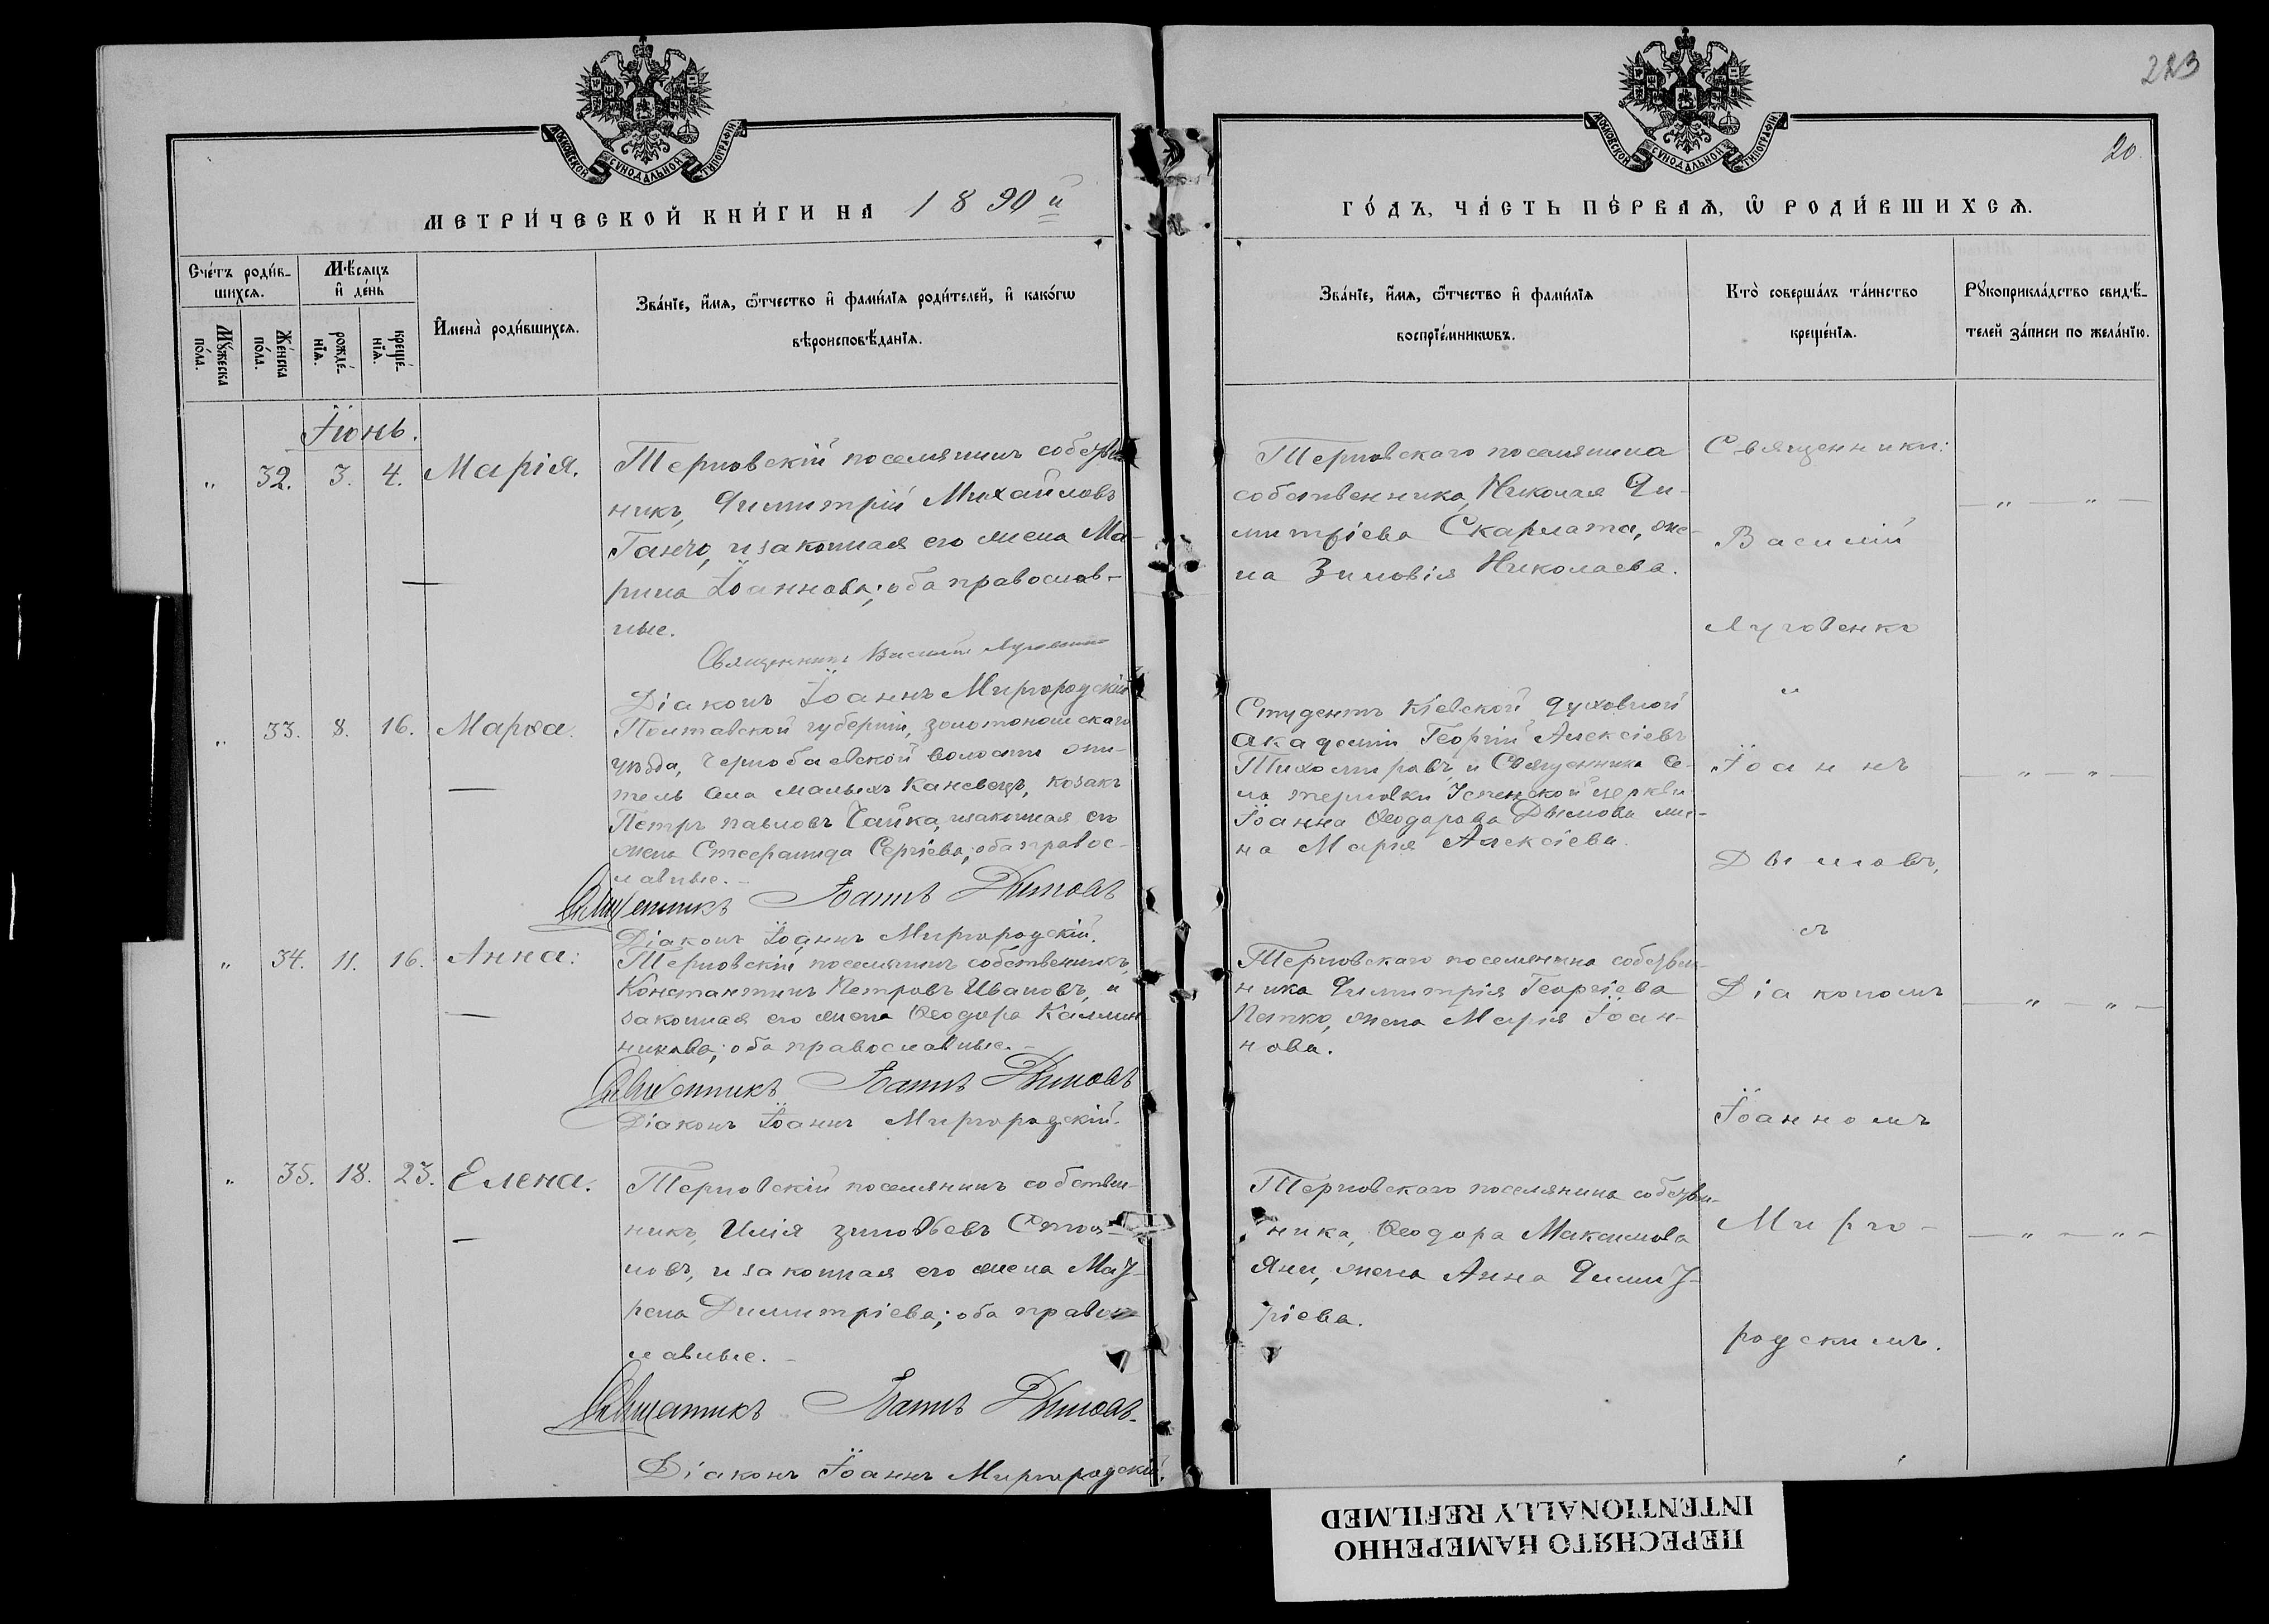 223
20.
МОСКОВСКОЙ СѴНОДАЛЬНОЙ ТИПОГРАФІИ
МОСКОВСКОЙ СѴНОДАЛЬНОЙ ТИПОГРАФІИ
МЕТРИ́ЧЕСКОЙ КНИ́ГИ НА 1890й
ГО́ДЪ, ЧА́СТЬ ПЕ́РВАѦ, Ѿ РОДИ́ВШИХСѦ.
Сче́тъ роди́в-
шихсѧ.
Мꙋ́жеска по́ла.
Же́нска по́ла.
Мѣ́сѧцъ и҆ де́нь
рожде́-нїѧ.
креще́-нїѧ.
И҆мена̀ роди́вшихсѧ.
Зва́нїе, и҆́мѧ, ѻ҆́тчество и҆ фами́лїѧ роди́телей, и҆ како́гѡ
вѣроисповѣ́данїѧ.
Зва́нїе, и҆́мѧ, ѻ҆́тчество и҆ фами́лїѧ
воспрїе́мникѡвъ.
Кто̀ соверша́лъ та́инство
креще́нїѧ.
Рꙋкоприкла́дство свидѣ́-
телей за́писи по жела́нїю.
Іюнь.
" 32. 3. 4. Марія.
Терновскій поселянинъ собствен
никъ, Димитрій Михайловъ
Ганчо, и законная его жена Ма-
рина Іоаннова; оба православ-
ные.
Священникъ Василій Луговенко
Діаконъ Іоаннъ Миргородскій
Терновскаго поселянина
собственника, Николая Ди-
митріева Скарлата, же-
на Зиновія Николаева.
" 33. 8. 16. Марѳа.
Полтавской губерніи, золотоношскаго
уѣзда, Чернобаевской волости жи-
тель села малыхъ Каневецъ, козакъ
Петръ павловъ Чайка, и законная его
жена Стефанида Сергіева; оба правос-
лавные.-
Священникъ Іоаннъ Дымовъ
Діаконъ Іоаннъ Миргородскій.
Студентъ Кіевской духовной
академіи Георгій Алексіевъ
Тихомировъ, и Священника се-
ла терновки Успенской церкви
Іоанна Ѳеодорова Дымова же-
на Марія Алексіева.
" 34. 11. 16. Анна:
Терновскій поселянинъ собственникъ,
Константинъ Петровъ Ивановъ, и
законная его жена Ѳеодора Калин
никова; оба православные.-
Священникъ Іоаннъ Дымовъ
Діаконъ Іоаннъ Миргородскій.
Терновскаго поселянина собствен-
ника Димитрія Георгіева
Патко, жена Марія Іоан-
нова.
" 35. 18. 23. Елена.
Терновскій поселянинъ собствен-
никъ, Илія зиновьевъ Стоя-
новъ, и законная его жена Мат-
рена Димитріева; оба правос
лавные.-
Священникъ Іоаннъ Дымовъ.
Діаконъ Іоаннъ Миргородскій.
Терновскаго поселянина собствен-
ника, Ѳеодора Максимова
Яни, жена Анна Димит-
ріева.
Священники:
Василій
Луговенко
и
Іоаннъ
Дымовъ,
съ
Діакономъ
Іоанномъ
Мирго-
родскимъ.
ПЕРЕСНЯТО НАМЕРЕННО
INTENTIONALLY REFILMED